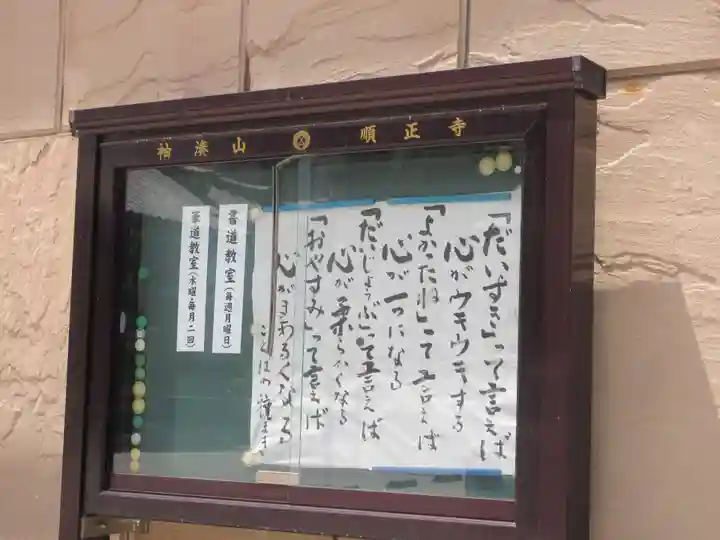 袖湊山 順正寺
「だいすき」って言えば
心がウキウキする
「よかったね」って言えば
心が一つになる
「だいじょうぶ」って言えば
心が柔らかくなる
「おやすみ」って言えば
心がまあるくなる
書道教室(毎週月曜日)
華道教室(木曜毎月二回)